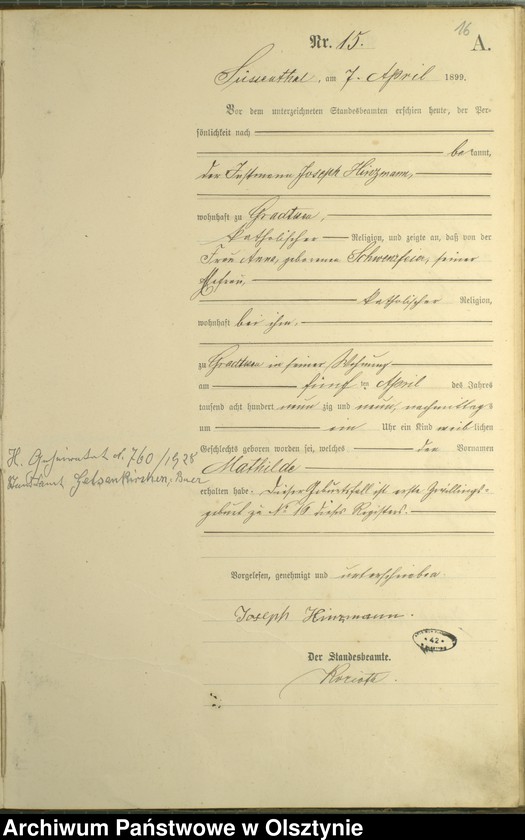 16
Nr. 15. A.
Süssenthal, am 7. April 1899.
Vor dem unterzeichneten Standesbeamten erschien heute, der Per-
sönlichkeit nach
bekannt,
der Instmann Joseph Hinzmann,
wohnhaft zu
katholischer Religion, und zeigte an, daß von der
Frau Anna, geborenen seiner
Ehefrau,
katholischer Religion,
wohnhaft bei ihm,
zu in seiner Wohnung
am fünf ten April des Jahres
tausend acht hundert neun zig und neun, nachmittags
um ein Uhr ein Kind weiblichen
Geschlechts geboren worden sei, welches den Vornamen
Mathilde
erhalten habe. Dieser Geburtsfall ist erste Zwillings-
geburt zu No 16 dieses Registers.
H. Geheiratet No 760/1928
Standesamt Gelsenkirchen-Buer
Vorgelesen, genehmigt und unterschrieben.
Joseph Hinzmann.
Der Standesbeamte.
42
Archiwum Państwowe w Olsztynie